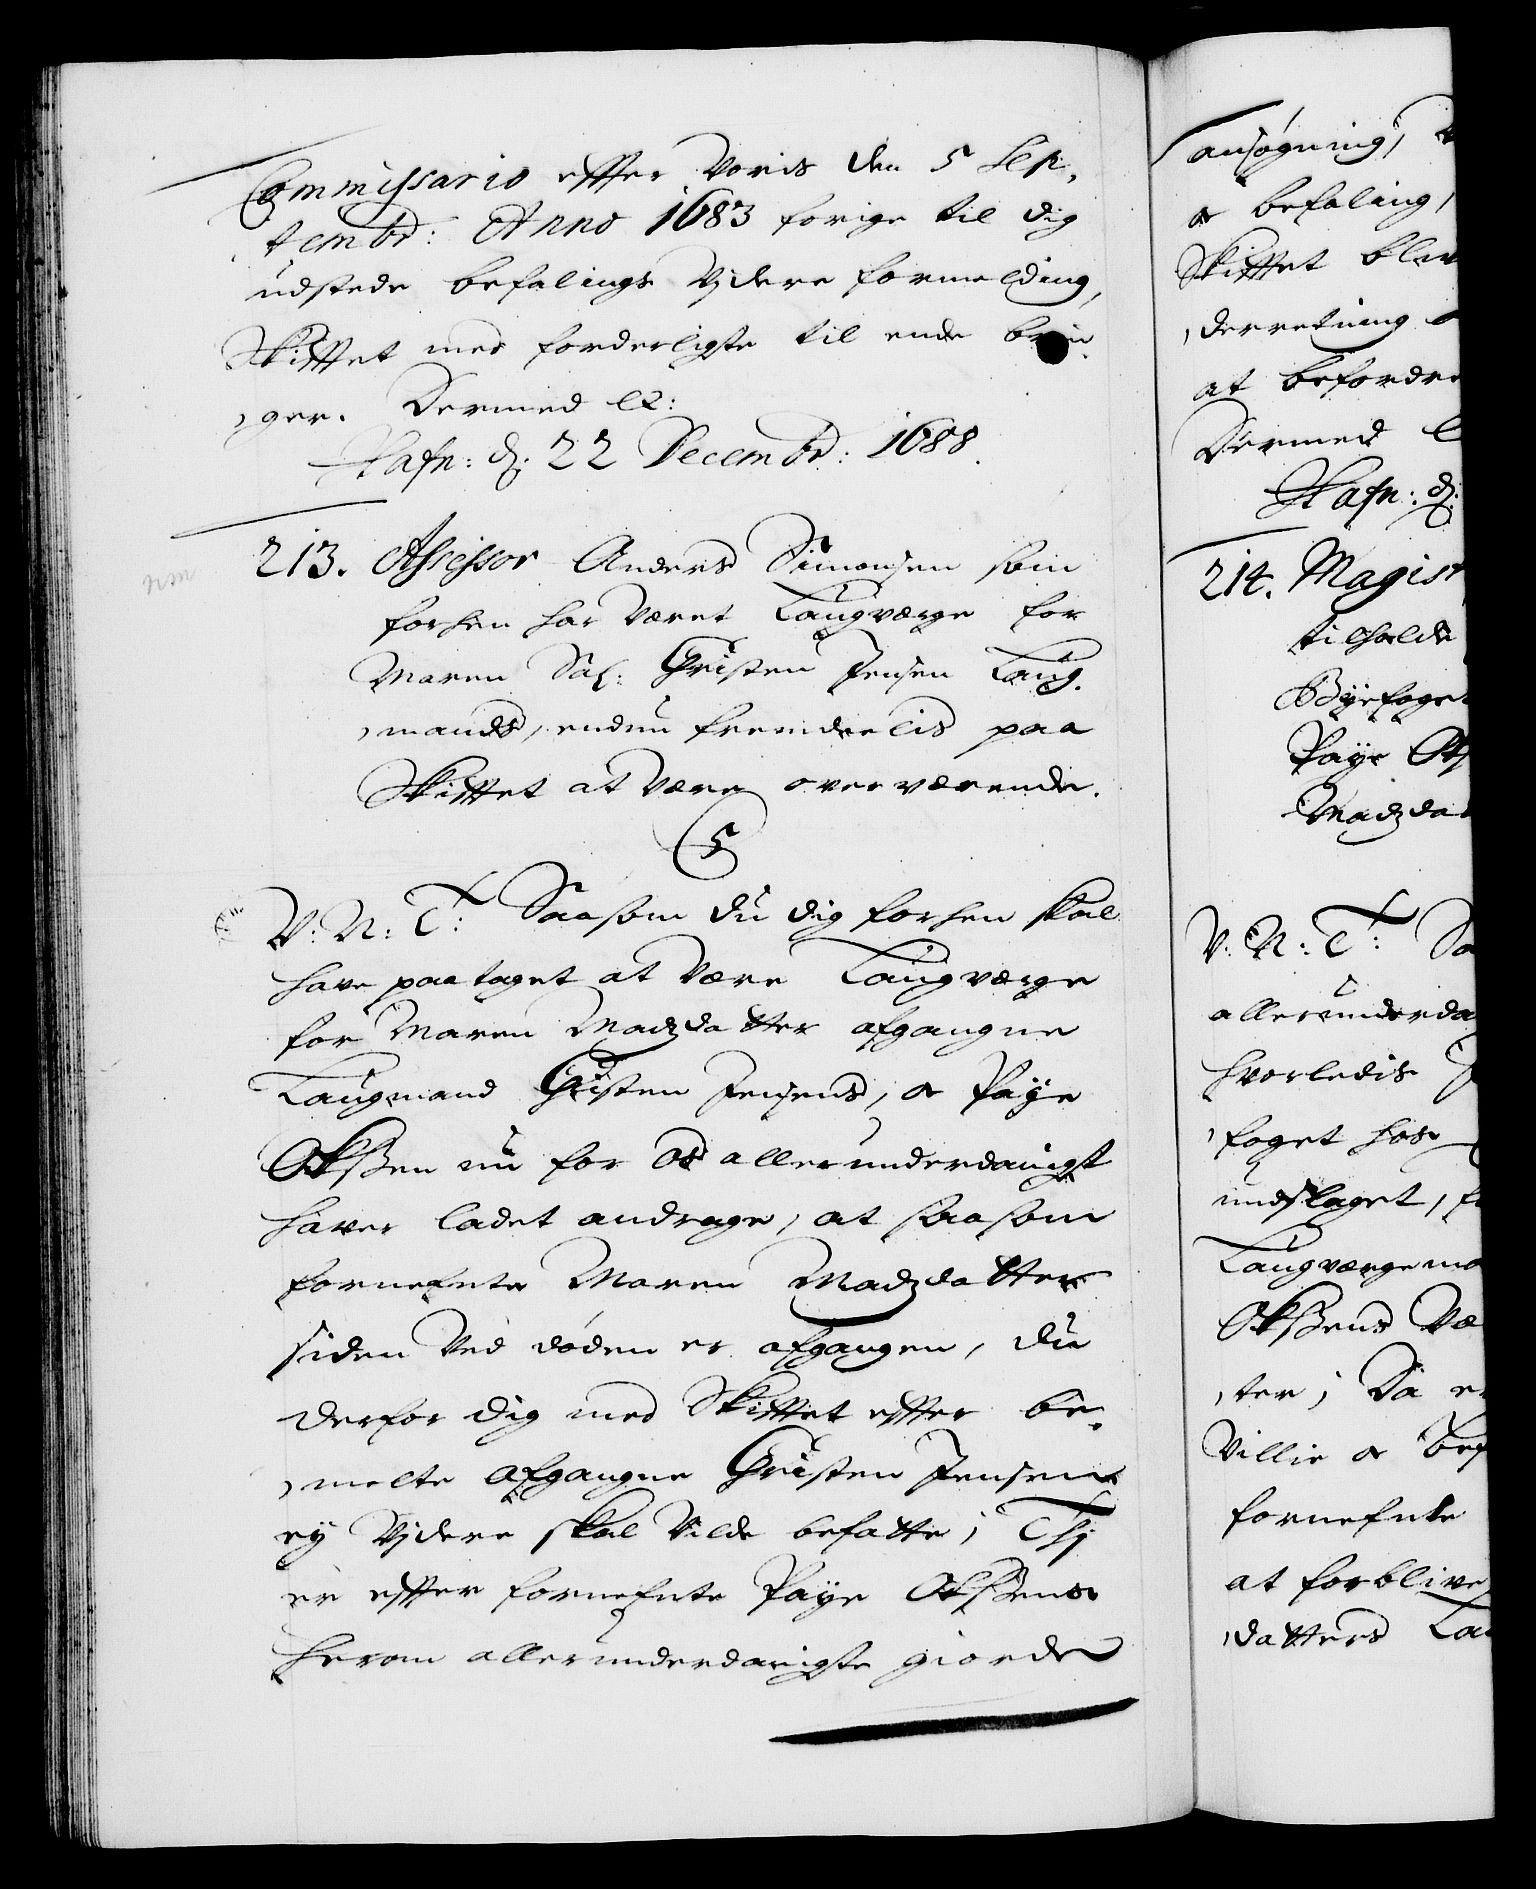 Commissario effter Voris den 5 Sep,
,tembr: Anno 1683 forige til dig
udstede befalings Vjdere formelding,
Skifftet med forderligste til ende brin,
,ger. Dermed &:
Hafn: d: 22 Decembr: 1688.
213. Assessor Anders Simonsen som
forhen har Været Laugværge for
Maren Sal: Christen Jensen Laug,
,mands, endnu fremdeelis paa
Skifftet at Være overværende.
V: N: T: Saasom du dig forhen skal
have paataget at Være Laugværge
for Maren Madzdatter afgangne
Laugmand Christen Jensens, oc Paye
Okssen nu for Os allerunderdanigst
haver ladet andrage, at saasom
fornefnte Maren Madzdatter
siden Ved døden er afgangen, du
derfor dig med Skifftet effter be,
,melte afgangne Christen Jensen
ey Vjdere skal Vilde befatte; Thj
er effter fornefnte Paye Okssens
herom allerunderdanigste giorde
ansøgning,
oc befaling,
Skifftet blev
,derretning
at befordre
Dermed
Hafn: d:
214. Magist
tilholde
Byefoget
Paye
Madzdat
V: N: T: Sa
allerunderda
hvorledis
,foget hos
undslaget,
Laugværgema
Okssens Væ
,ter; Da er
Villie oc bef
fornefnte
at forblive
,datters Lau